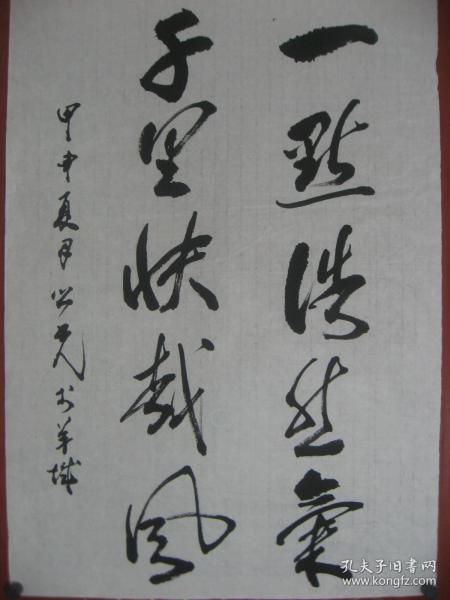 一點浩然氣
千里快哉風
甲申夏月公亮於羊城
孔夫子旧书网
www.kongfz.com